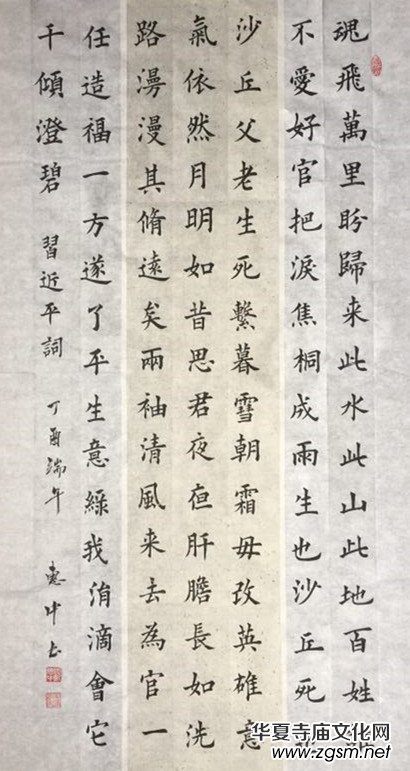 魂飛萬里盼歸来此水此山此地百姓
不愛好官把淚焦桐成雨生也沙丘死
沙丘父老生死繫暮雪朝霜毋改英雄意
氣依然月明如昔思君夜亱肝膽長如洗
路漫漫其脩遠矣兩袖清風来去為官一
任造福一方遂了平生意綠我涓滴會它
千傾澄碧 習近平詞 丁酉端午 惠中书
华夏寺庙文化网
www.zgsm.net